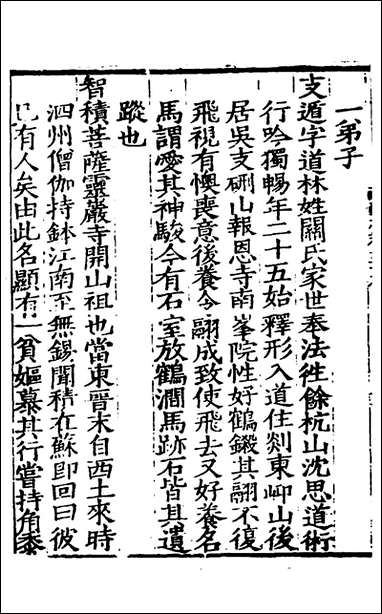 一弟子
支遁字道林姓關氏家世奉法徃餘杭山沈思道術
行吟獨暢年二十五始釋形入道住剡東岬山後
居吳支硎山報恩寺南峯院性好鶴鎩其翮不復
飛視有懊喪意後養令翮成致使飛去又好養名
馬謂愛其神駿今有石室放鶴澗馬跡石皆其遺
蹤也
智積菩薩靈巖寺開山祖也當東晋末自西土來時
泗州僧伽持鉢江南至無錫聞積在蘇即回曰彼
已有人矣由此名顯有一貧嫗慕其行嘗持角黍